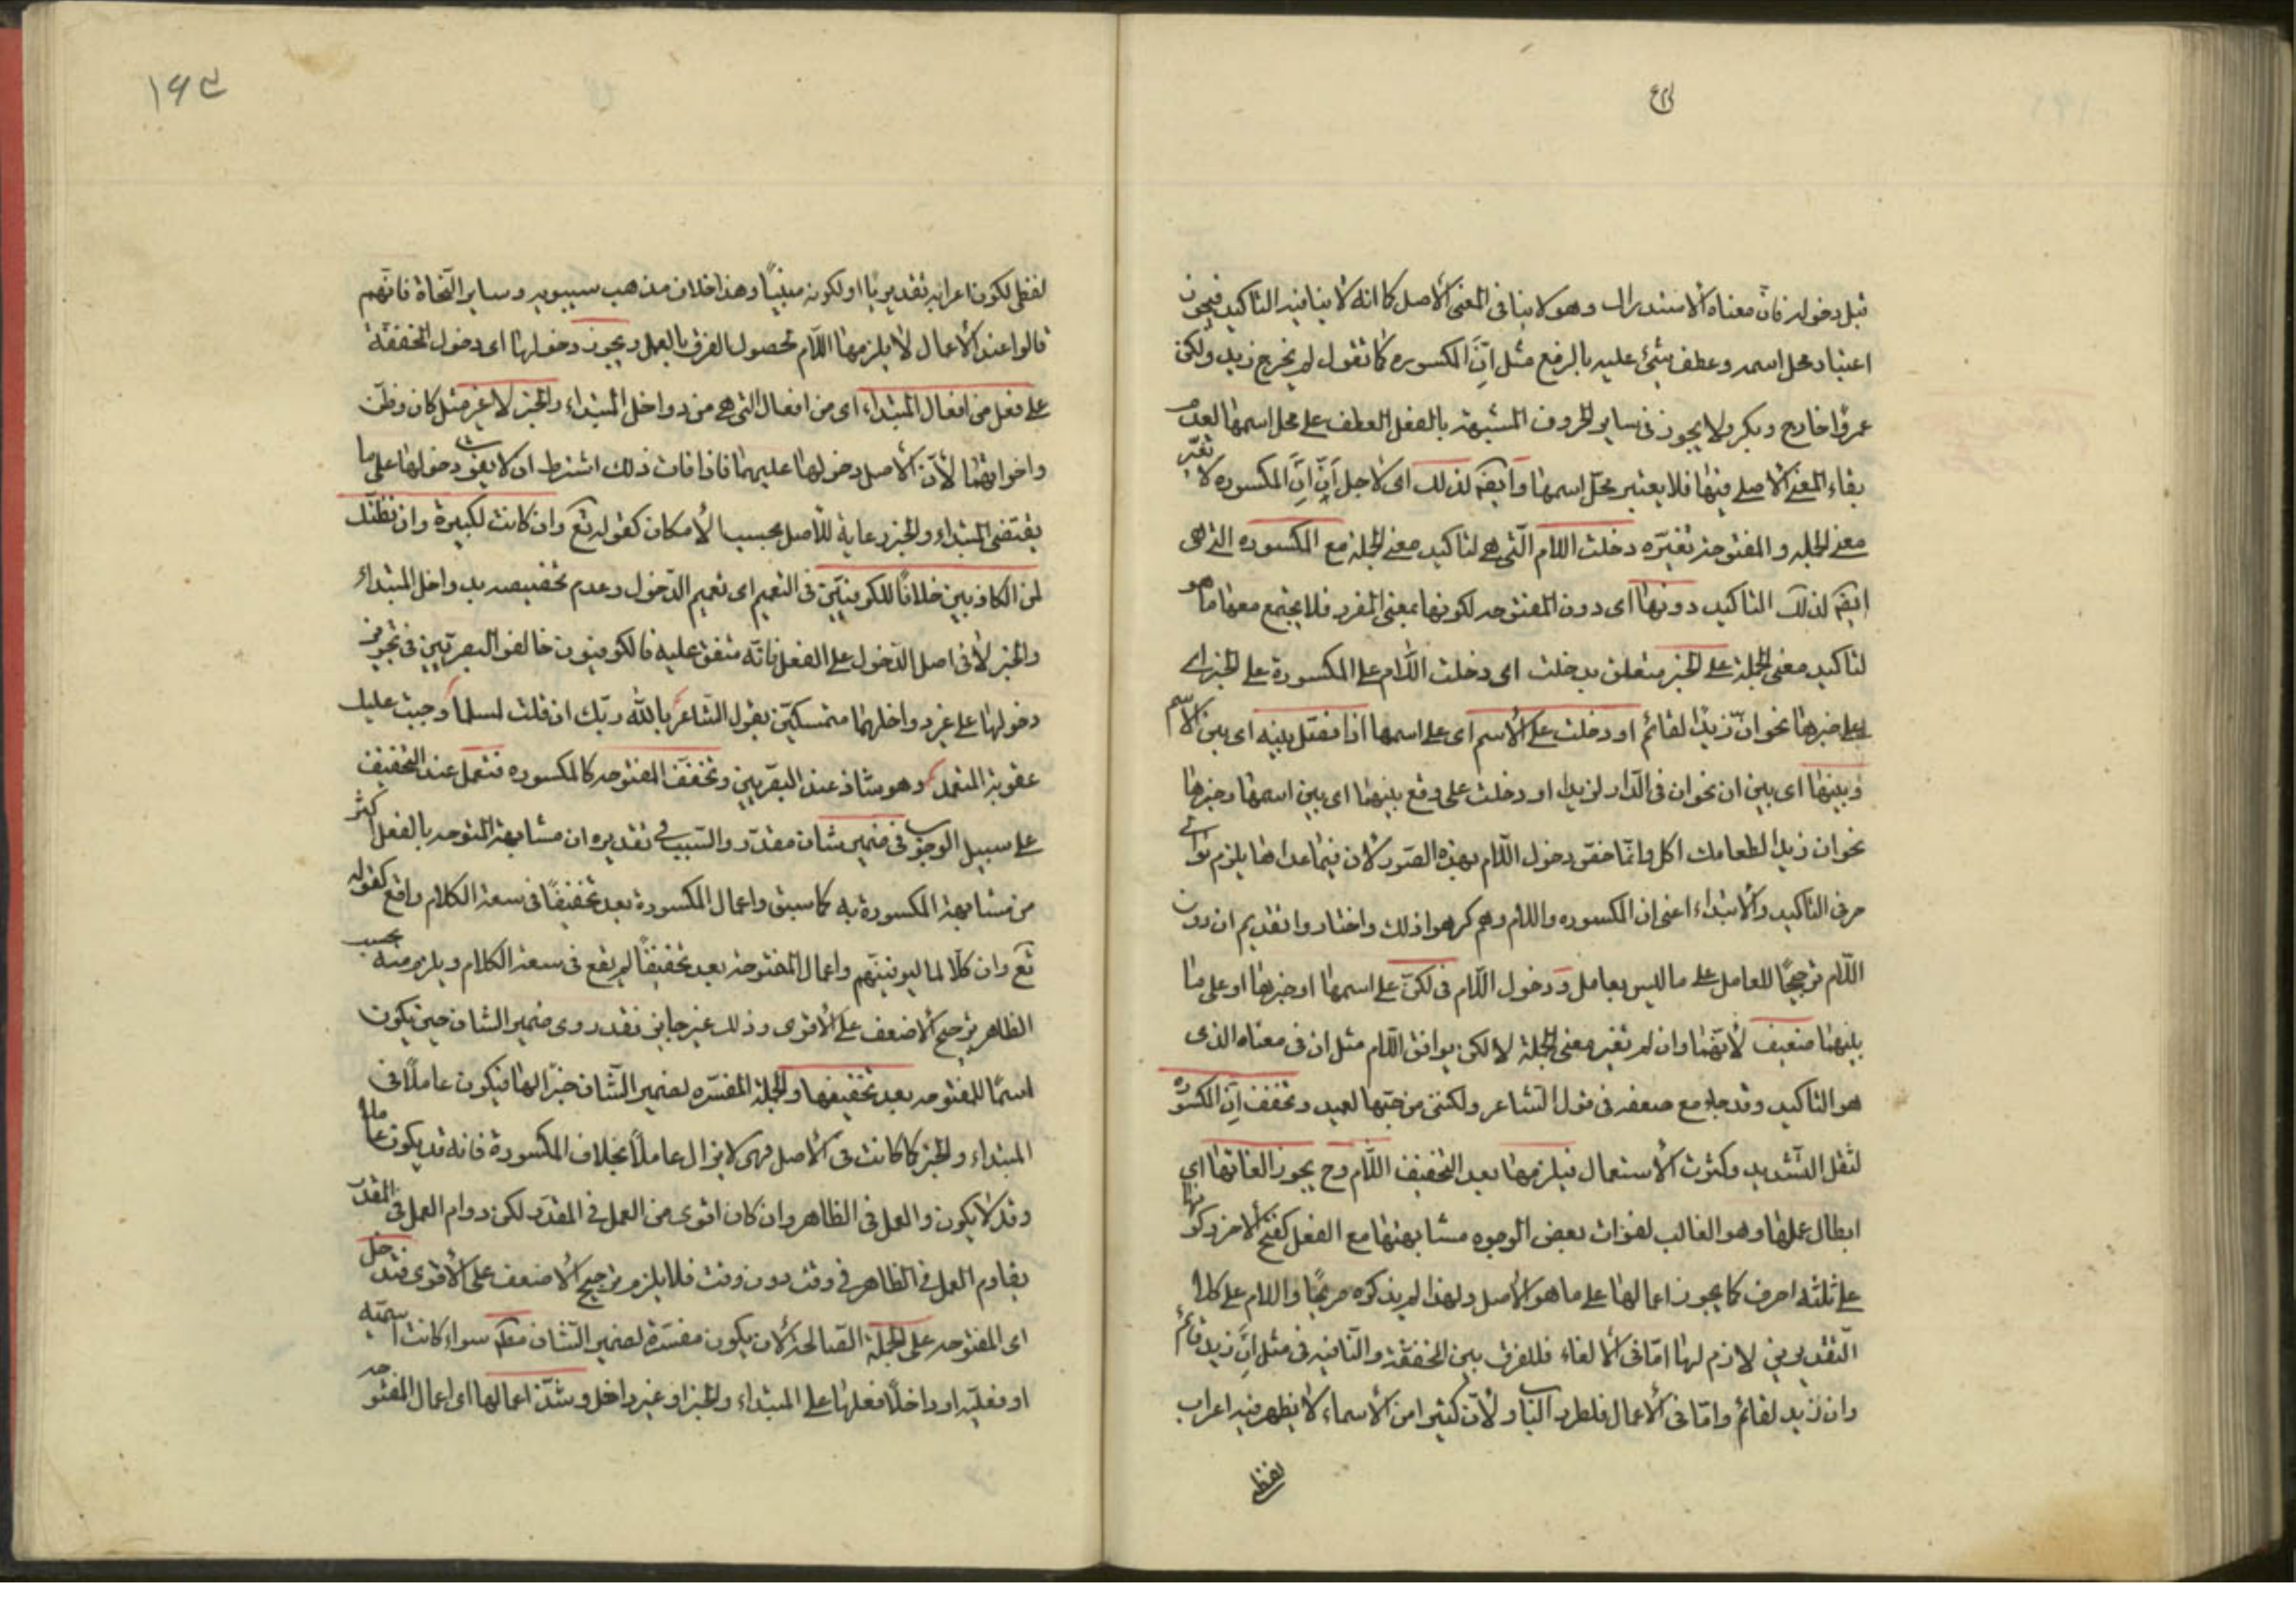 قبل دخوله فان معناه الاستدراك وهو لا ينافى المعنى الاصل كما انه لا ينافيه التاكيد فيجوز
اعتبار محل اسمه وعطف شئ عليه بالرفع مثل انَّ المكسوره كما تقول لم يخرج زيد ولكن
عمرًا خارج وبكر ولا يجوز فى ساير الحروف المشبهة بالفعل العطف على محل اسمها لعدم
بقاء المعنى الاصلى فيها فلا يعتبر محل اسمها ولذلك اى لاجل انَّ انَّ المكسوره لا تغيّر
معنى الجمله والمفتوحة تغيّره دخلت اللام الّتى هى لتاكيد معنى الجملة مع المكسوره التى هى
ايضَ لذلك التاكيد دونها اى دون المفتوحه لكونها بمعنى المفرد فلا يجتمع معها ما هو
لتاكيد معنى الجملة على الخبر متعلق بدخلت اى دخلت اللام على المكسورة على الخبر اى
على خبرها نحو انّ زيدًا لقائم او دخلت على الاسم اى على اسمها اذا فصل بينه اى بين الاسم
وبينها اى بين ان نحو ان فى الدّار لزيدا او دخلت على ما وقع بينهما اى بين اسمها وخبرها
نحو ان زيدًا لطعامك اكل وانّما خصّ دخول اللّام بهذه الصّور لان فيما عداها يلزم توالى
حرفى التاكيد والابتداء اعنى ان المكسوره واللام وهم كرهوا ذلك واختاروا تقديم ان دون
اللّام ترجيحًا للعامل على ما ليس بعامل ودخول اللّام فى لكنّ على اسمها او خبرها او على ما
بينهما ضعيف لأنّها وان لم تغير معنى الجملة لا لكن يوافق اللّام مثل ان فى معناه الذى
هو التاكيد وقد جاء مع ضعفه فى قول الشاعر ولكننى من حبّها لعميد وتخفف اِنَّ المكسوره
لثقل التّشديد وكثرت الأستعمال فيلزمها بعد التخفيف اللّام وح يجوز الغائها اى
ابطال عملها وهو الغالب لفوات بعض الوجوه مشابهتها مع الفعل كفتح الاخر وكونها
على ثلثه احرف كما يجوز اعمالها على ما هو الاصل ولهذا لم يذكره صريحًا واللام على كلا
التقديرين لازم لها امّا فى الالغاء فللفرق بين المخففة والنّافيه فى مثل انْ زيد قائم
وان زيد لقائم وامّا فى الاعمال فلطرد الباب ولأن كثيرا من الاسماء لا يظهر فيه اعراب
لفظى
١٩٣
لفظى لكون اعرابه تقديريًا او لكونه مبنيًا وهذا خلاف مذهب سيبويه وساير النّحاة فانّهم
قالوا عند الأعمال لا يلزمها اللّام لحصول الفرق بالعمل ويجوز دخولها اى دخول المخففة
على فعل من افعال المبتداء اى من افعال التى هى من دواخل المبتداء والخبر لا غير مثل كان وظنّ
واخواتهما لأنّ الأصل دخولها عليهما فاذا فات ذلك اشترط ان لا يفوت دخولها على ما
يقتضى المبتداء والخبر رعاية للأصل بحسب الأمكان كقوله تع وان كانت لكبيرة وان نظنّك
لمن الكاذبين خلافًا للكوفييّن فى التعميم اى تعميم الدّخول وعدم تخصيصه بدواخل المبتداء
والخبر لا فى اصل الدّخول على الفعل فانّه متفق عليه فالكوفيون خالفوا البصريّين فى تجويز
دخولها على غير دواخلهما متمسكين بقول الشّاعر بالله ربّك ان قلت لمسلمًا وجبت عليك
عقوبة المتعمد وهو شاذ عند البصريّين وتخفف المفتوحه كالمكسوره فتعمل عند التخفيف
على سبيل الوجوب فى ضمير شان مقدّر والسّبب فى تقديره ان مشابهة المفتوحه بالفعل اكثر
من مشابهة المكسورة به كما سبق واعمال المكسورة بعد تخفيفها فى سعة الكلام واقع كقوله
تع وان كلّا لما ليوفينّهم واعمال المفتوحة بعد تخفيفها لم يقع فى سعة الكلام ويلزم منه بحسب
الظاهر ترجيح الاضعف على الأقوى وذلك غير جايز فقدروى ضمير الشان حتى يكون
اسمًا للمفتوحه بعد تخفيفها والجملة المفسّره لضمير الشّان خبرًا لها فيكون عاملًا فى
المبتداء والخبر كما كانت فى الأصل فهى لا يزال عاملًا بخلاف المكسورة فانه قد يكون عاملا
وقد لا يكون والعمل فى الظاهر وان كان اقوى من العمل فى المقدّر لكن دوام العمل فى المقدّر
يقاوم العمل فى الظاهر فى وقت دون وقت فلا يلزم ترجيح الأضعف على الأقوى فتدخل
اى المفتوحه على الجملة الصّالحة لأن يكون مفسّرة لضمير الشّان مطلَ سواء كانت اسميّه
او فعليّه او داخلًا فعلها على المبتداء والخبر او غير داخل وشذّ اعمالها اى اعمال المفتوحه